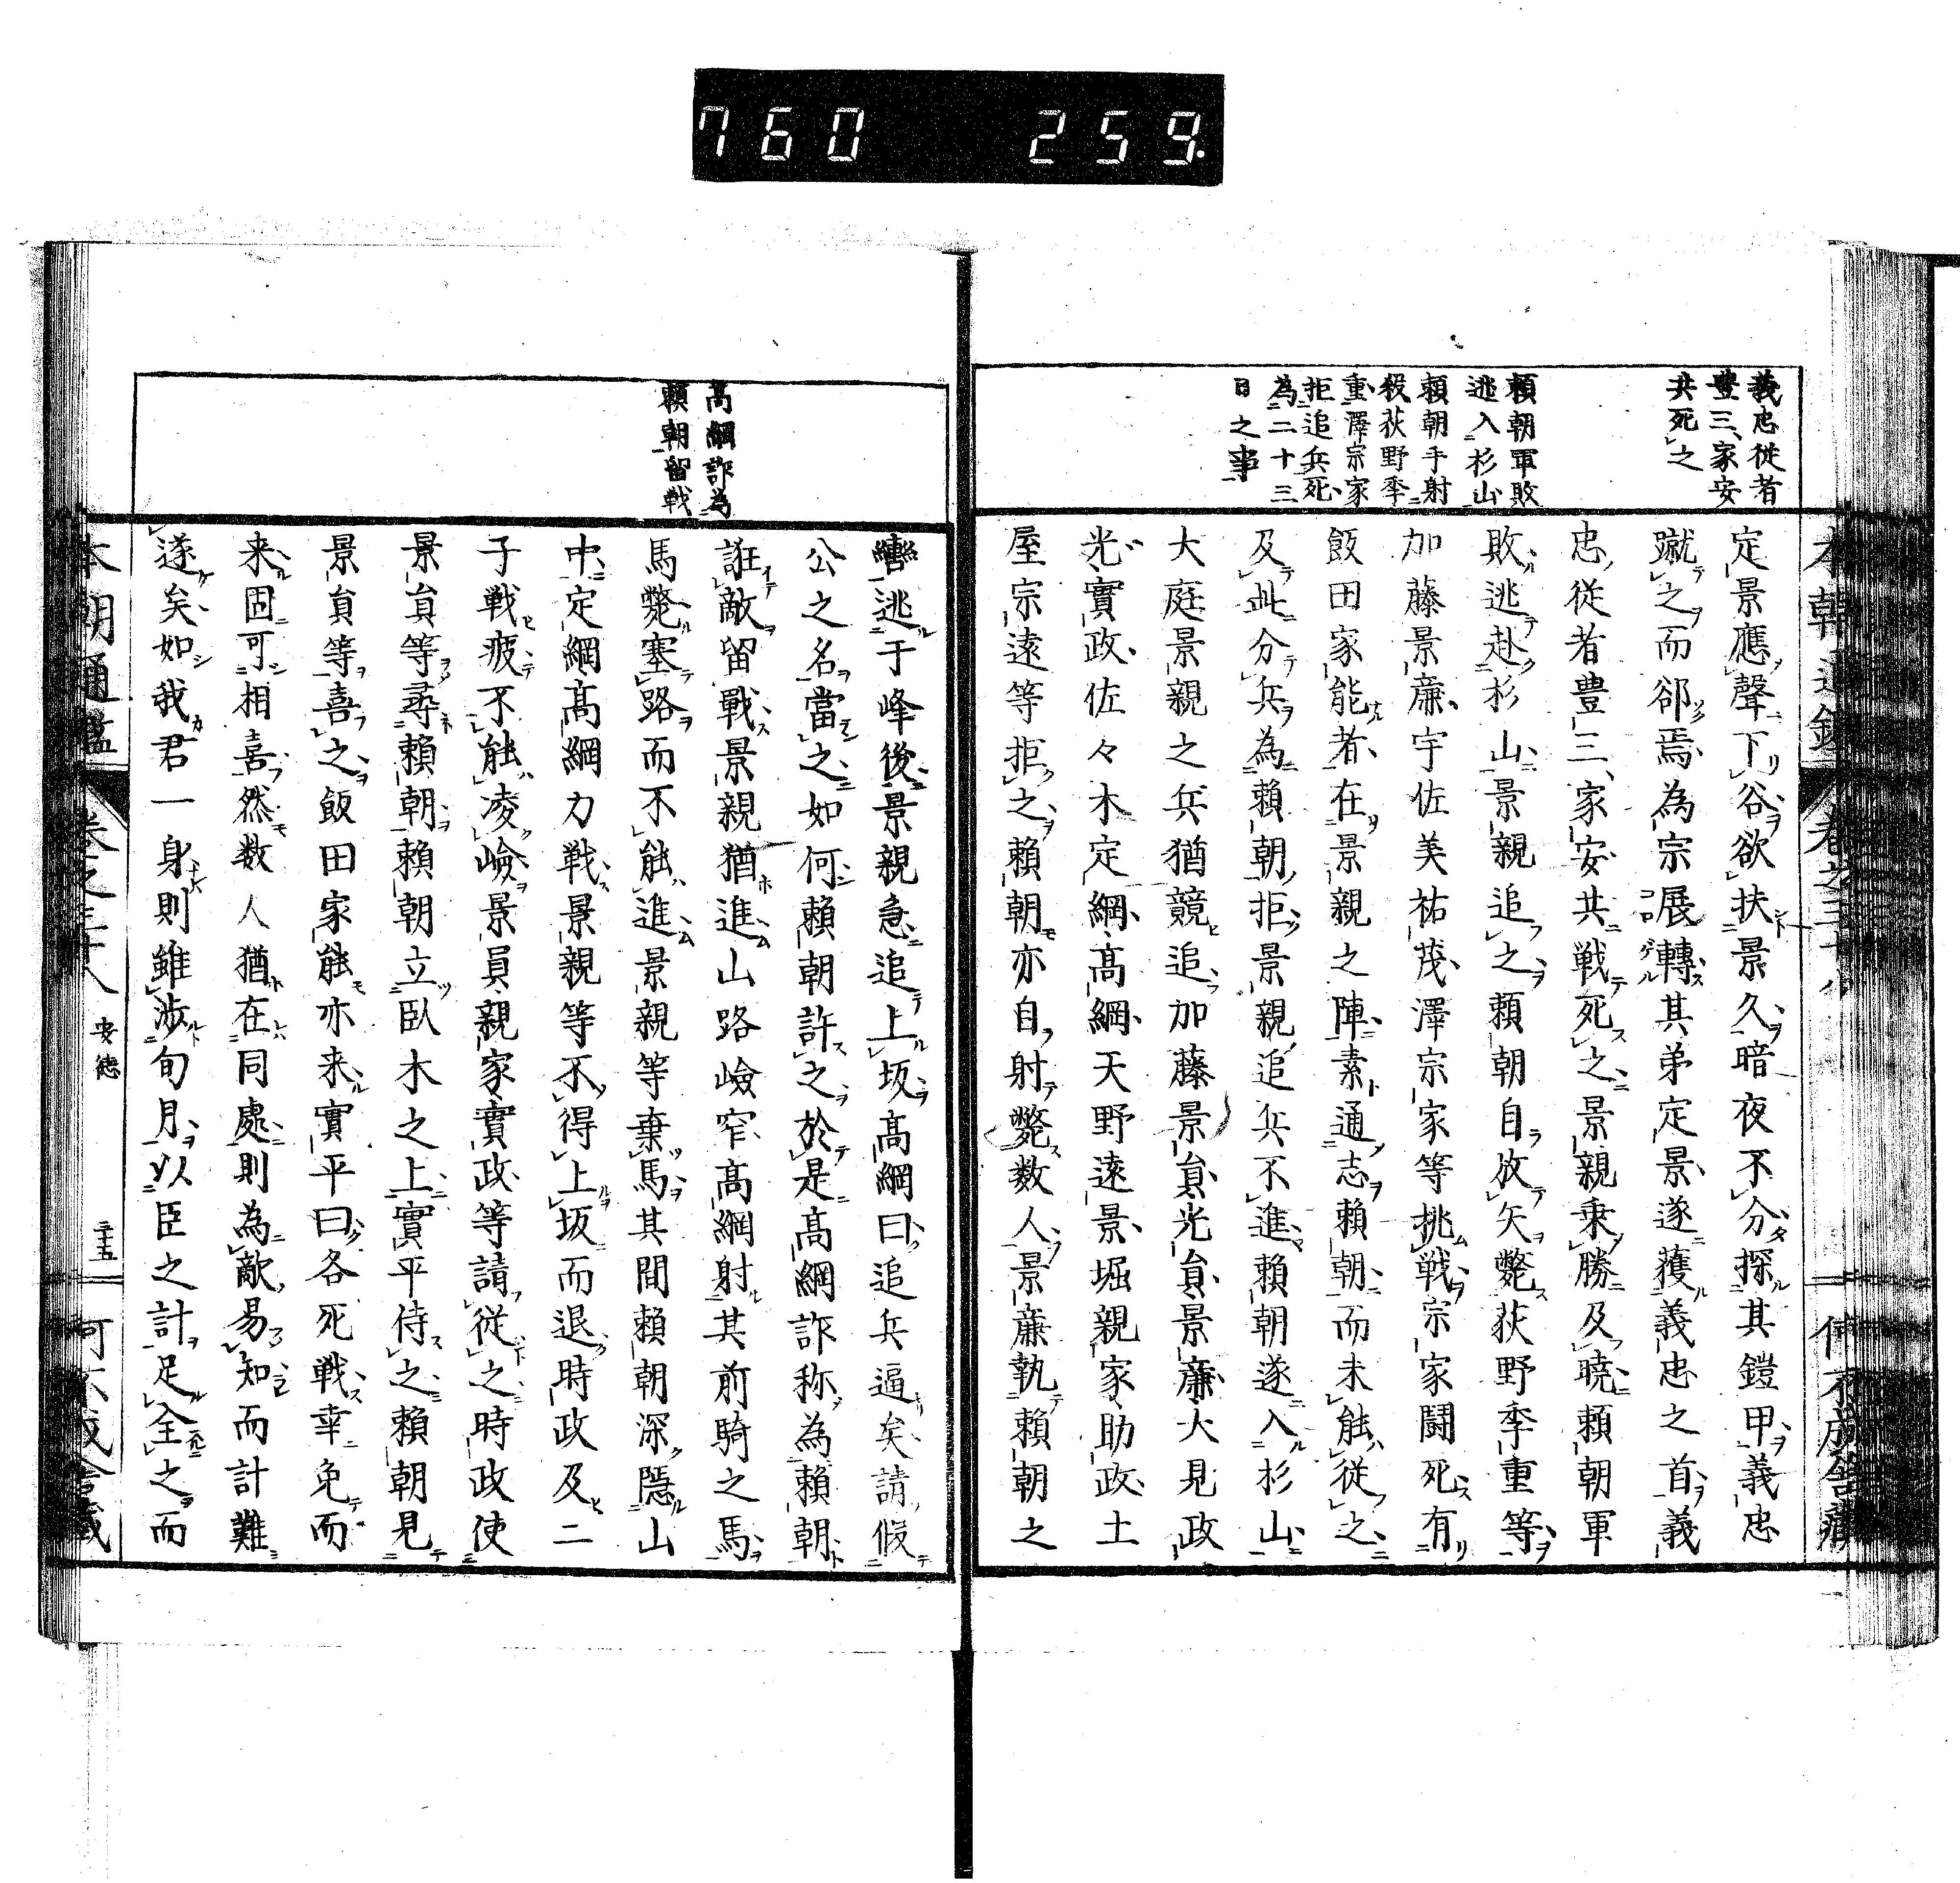 760 259.
義忠従者
豊三家安
共死之
頼朝軍敗
逃入杉山
頼朝手射
殺荻野季
重澤宗家
拒追兵死
為二十三
日之事
定景應聲下谷欲扶景久暗夜不分探其鎧甲義忠
蹴之而郤焉為宗展轉其弟定景遂獲義忠之首義
忠従者豊三家安共戦死之景親乗勝及暁頼朝軍
敗逃赴杉山景親追之頼朝自放矢斃荻野季重等
加藤景廉宇佐美祐茂澤宗家等挑戦宗家闘死有
飯田家能者在景親之陣素通志頼朝而未能従之
及此分兵為頼朝拒景親追兵不進頼朝遂入杉山
大庭景親之兵猶競追加藤景員光員景廉大見政
光實政佐々木定綱高綱天野遠景堀親家助政土
屋宗遠等拒之頼朝亦自射斃数人景廉執頼朝之
高綱詐為
頼朝留戦
轡逃于峰後景親急追上坂高綱曰追兵逼矣請假
公之名當之如何頼朝許之於是高綱詐称為頼朝
誑敵留戰景親猶進山路嶮窄高綱射其前騎之馬
馬斃塞路而不能進景親等棄馬其間頼朝深隠山
中定綱高綱力戦景親等不得上坂而退時政及二
子戦疲不能凌嶮景員親家實政等請従之時政使
景員等尋頼朝頼朝立臥木之上實平侍之頼朝見
景員等喜之飯田家能亦来實平曰各死戦幸免而
来固可相喜然数人猶在同處則為敵易知而計難
遂矣如我君一身則雖渉旬月以臣之計足全之而
本朝通鑑 巻之三十八 安徳 三十五